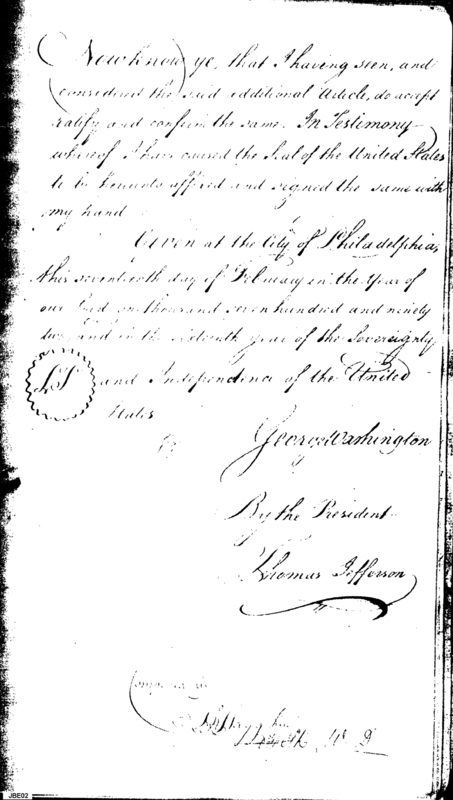 Now know ye, that I having seen, and
considered the said additional Article, do accept
ratify and confirm the same. In Testimony
whereof I have caused the Seal of the United States
to be hereunto affixed and signed the same with
my hand
Given at the City of Philadelphia,
this seventeenth day of February in the Year of
our Lord one thousand seven hundred and ninety
two, and in the sixteenth year of the Sovereignty
LS and Independence of the United
States
George Washington
By the President
Thomas Jefferson
JBE02